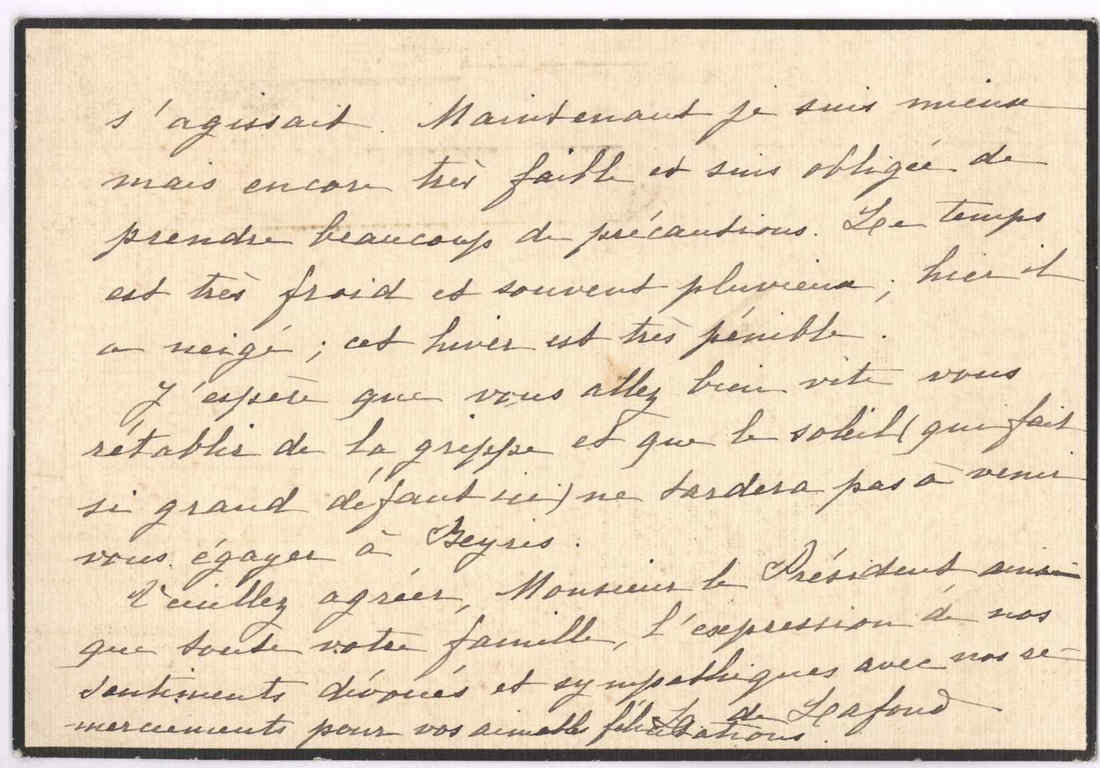 s'agissait. Maintenant je suis mieux
mais encore très faible et suis obligée de
prendre beaucoup de précautions. Le temps
est très froid et souvent pluvieux ; hier il
a neigé ; cet hiver est très pénible.
J'espère que vous allez bien vite vous
rétablir de la grippe et que le soleil (qui fait
si grand défaut ici) ne tardera pas à venir
vous égayer à Beyris.
Veuillez agréer, Monsieur le Président ainsi
que toute votre famille, l'expression de nos
sentiments dévoués et sympathiques avec nos re-
merciements pour vos aimables félicitations.
de Lafond